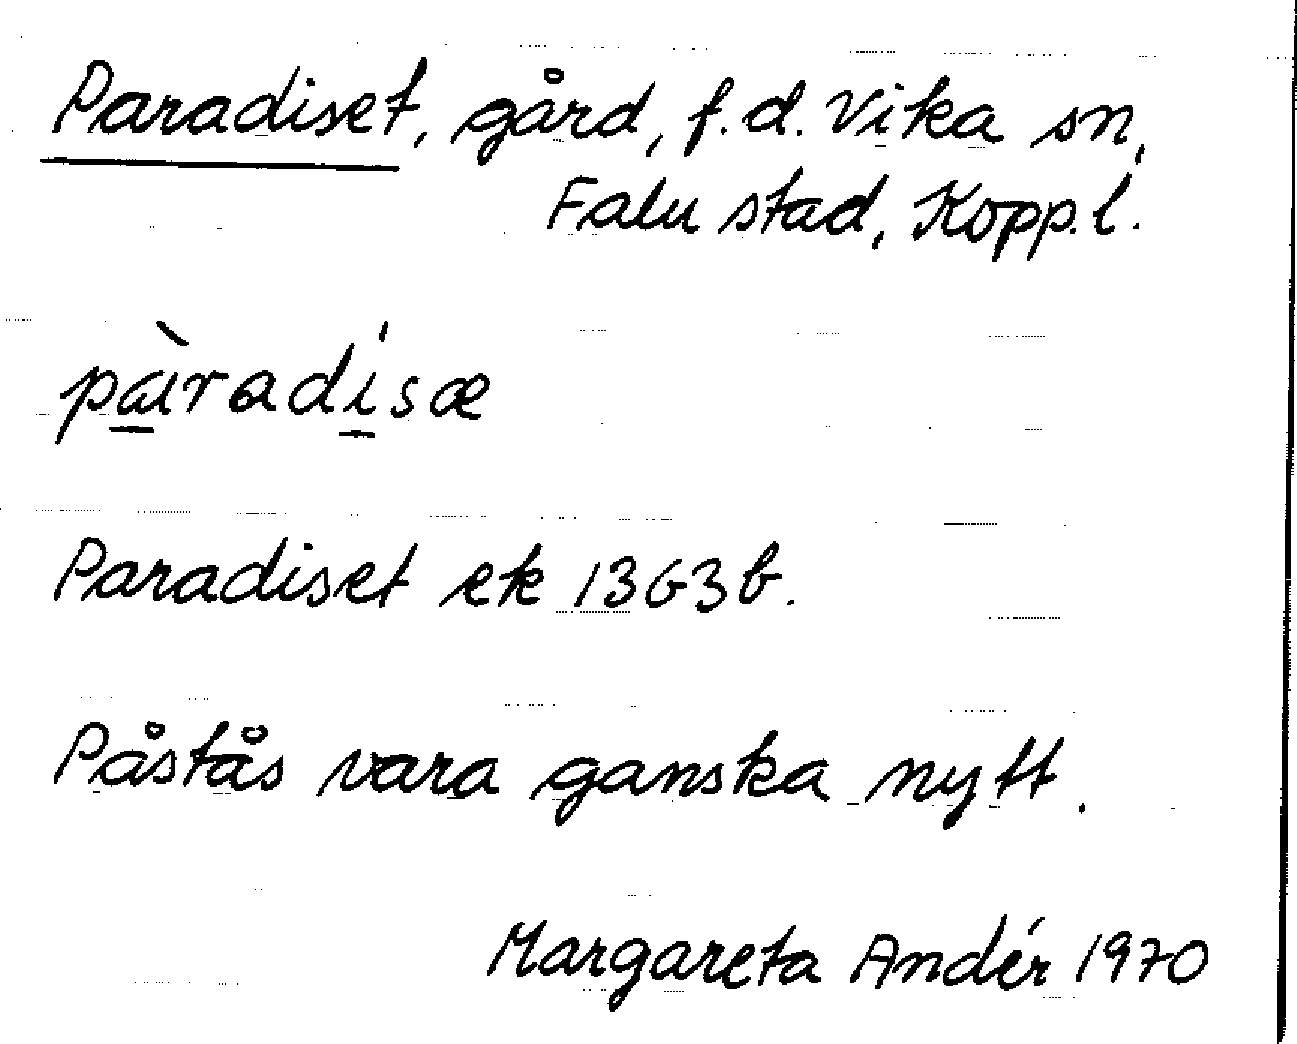 Paradiset, gård, f.d. Vika sn,
Falu stad, Kopp.l.
pàradisæ
Paradiset ek 13G3b.
Påstås vara ganska nytt.
Margareta Andér 1970